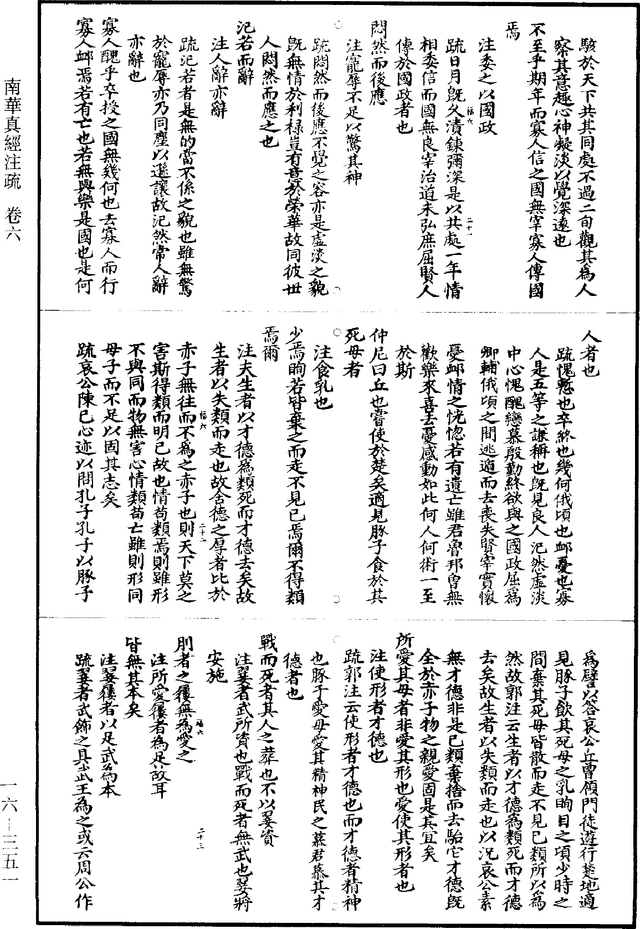 南華真經注疏　卷六
一六—三五一
駭於天下共其同處不過二旬觀其為人
察其意趣心神凝淡以覺深遠也
不至乎期年而寡人信之國無宰寡人傳國
焉
注委之以國政
疏日月既久漬鍊彌深是以共處一年情
相委信而國無良宰治道未弘庶屈賢人
傳於國政者也
悶然而後應
注寵辱不足以驚其神
疏悶然而後應不覺之容亦是虛淡之貌
既無情於利祿豈有意於榮華故同彼世
人悶然而應之也
氾若而辭
注人辭亦辭
疏氾若者是無的當不係之貌也雖無驚
於寵辱亦乃同塵以遜讓故氾然常人辭
亦辭也
寡人醜乎卒授之國無幾何也去寡人而行
寡人卹焉若有亡也若無與樂是國也是何
人者也
疏愧慙也卒終也幾何俄頃也卹憂也寡
人是五等之謙稱也既見良人氾然虛淡
中心愧醜戀慕殷勤終欲與之國政屈為
卿輔俄頃之間逃遁而去喪失賢宰實懷
憂卹情之恍惚若有遺亡雖君魯邦曾無
歡樂來喜去憂感動如此何人何術一至
於斯
仲尼曰丘也嘗使於楚矣適見㹠子食於其
死母者
注食乳也
少焉眴若皆棄之而走不見己焉爾不得類
焉爾
注夫生者以才德為類死而才德去矣故
生者以失類而走也故含德之厚者比於
赤子無往而不為之赤子也則天下莫之
害斯得類而明己故也情苟類焉則雖形
不與同而物無害心情類苟亡雖則形同
母子而不足以固其志矣
疏哀公陳己心迹以問孔子孔子以㹠子
為譬以答哀公丘曾領門徒遊行楚地適
見㹠子飲其死母之乳眴目之頃少時之
間棄其死母皆散而走不見己類所以為
然故郭注云生者以才德為類死而才德
去矣故生者以失類而走也以況哀公素
無才德非是己類棄捨而去駘它才德既
全於赤子物之親愛固是其宜矣
所愛其母者非愛其形也愛使其形者也
注使形者才德也
疏郭注云使形者才德也而才德者精神
也㹠子愛母愛其精神民之慕君慕其才
德者也
戰而死者其人之葬也不以翣資
注翣者武所資也戰而死者無武也翣將
安施
刖者之屨無為愛之
注所愛屨者為足故耳
皆無其本矣
注翣屨者以足武為本
疏翣者武飾之具武王為之或云周公作